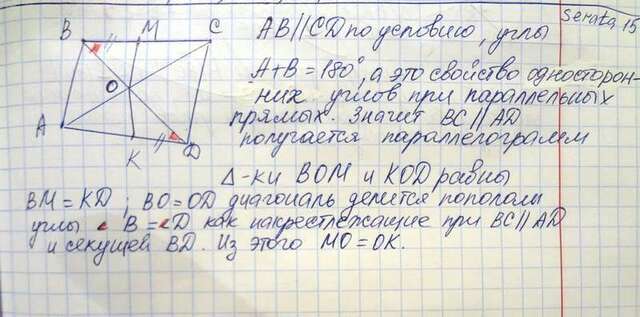 Serata 15
B M C
O
A K D
AB//CD по условию, углы
A+B=180°, а это свойство односторон-
них углов при параллельных
прямых. Значит BC//AD
получается параллелограмм
Δ-ки BOM и KOD равны
BM=KD; BO=OD диагональ делится пополам
углы ∠B=∠D как накрестлежащие при BC//AD
и секущей BD. Из этого MO=OK.